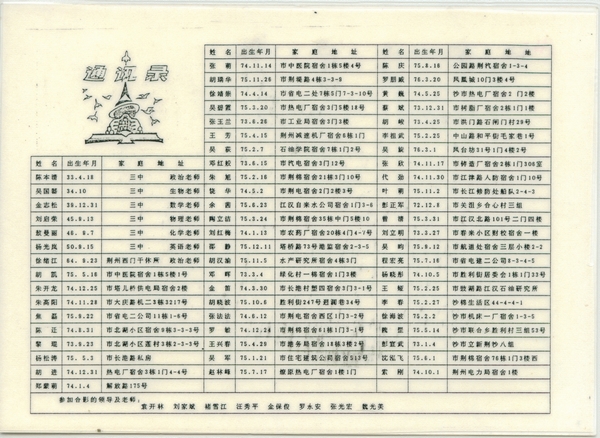 通讯录
姓名 出生年月 家庭地址
陈本谱 33.4.18 三中 政治老师
吴国都 34.10 三中 生物老师
金志松 38.12.31 三中 数学老师
刘启荣 45.9.13 三中 物理老师
敖曼丽 46.8.7 三中 化学老师
杨光岚 50.9.15 三中 英语老师
徐绪江 64.9.23 荆州西门干休所 政治老师
胡凯 75.5.16 市中医院宿舍1栋5楼1号
朱开龙 74.12.25 市塔儿桥供电局宿舍2楼
朱高阳 74.11.28 市大庆路机二3栋3217号
焦磊 75.9.22 市省电二公司11栋1-6号
陈正 74.8.31 市北湖小区宿舍9栋3-3-3号
黎琨 73.9.23 市北湖小区莲村3栋2-3-3号
杨松涛 75.5.3 市长港路私房
胡进 74.12.31 热电厂宿舍3栋1门4-4号
郑蒙萌 74.1.4 解放路175号
姓名 出生年月 家庭地址
张朝 74.11.14 市中医院宿舍1栋5楼4号
胡瑞华 75.11.26 市荆堤路4栋3-3-9
徐靖崇 74.4.14 市省电二处7栋5门7-3-10号
吴碧霞 75.2.20 市热电厂宿舍3门5楼18号
张玉兰 73.6.26 市工业局宿舍3门3楼
王芳 75.4.15 荆州减速机厂宿舍6栋1门
吴豪 75.2.7 石油学院宿舍7栋1门3楼
邓红胶 73.6.15 市汽电宿舍3门12号
朱旭 75.2.16 市荆棉宿舍1门10号
饶华 74.5.2 市荆电宿舍2门2楼3号
余茜 75.6.23 江汉自来水公司宿舍1门3-6
陶立洁 75.2.24 市荆棉宿舍35栋中门5楼10
刘红梅 74.1.13 市农药厂宿舍20栋4门4-7号
邵静 75.12.11 塔桥路73号港监宿舍2-3-5
胡汉渝 74.11.5 水产研究所宿舍4栋3门
邓晖 73.2.4 绿化村一棉宿舍1门3楼
金笛 74.3.30 市长港村塑四宿舍3门3-1号
胡晓波 75.10.8 胜利街247号迴澜巷34号
张法法 74.6.12 市荆电宿舍西区1门3-2号
罗敏 74.12.24 市荆棉宿舍61栋3门1-3号
王兴春 75.4.28 市地务局宿舍18栋3楼2号
吴军 75.1.21 市住宅建筑公司宿舍513号
赵林峰 75.7.17 燎原热电厂宿舍1门1楼
姓名 出生年月 家庭地址
陈庆 75.8.18 公园路荆代宿舍1-3-4
罗朋威 76.3.20 凤凰城10门3楼4号
黄巍 74.5.25 沙市热电厂宿舍2门2楼
蔡斌 73.12.31 市树脂厂宿舍2栋1门1楼
胡峻 73.4.25 市洪门路石闸门村29号
李根武 75.2.25 中山路和平街毛家巷1号
吴旋 76.3.1 凤台坊31号1门4楼3号
张欣 74.11.17 市铸造厂宿舍2栋1门306室
代劲 74.11.30 市江津路人防宿舍1门10号
叶萌 75.11.2 市长江修防处船队2-4-2
彭正军 72.12.8 市关沮乡合心村三组
曹清 75.2.31 市江汉北路101号二门四楼
刘立明 73.2.27 市春来小区财校宿舍一楼
吴昀 75.9.12 市航道处宿舍三层小楼2-2
程宏亮 75.7.16 市省电建二公司8-3-4-5
杨晓彤 74.10.5 市胜利街居委会1栋1门33号
王榕 75.2.25 市燎湖路江汉石油研究所
李春 75.2.27 沙棉生活区44-4-4-1
徐海波 75.2.2 沙市机床一厂宿舍1-3-5
魏堃 75.5.14 沙市联合乡胜利村三组53号
彭宜武 75.3.4 沙市立新荆沙八组
沈泓飞 75.6.1 市荆棉宿舍76栋1门3楼西
索刚 74.10.1 荆州电力局宿舍1楼
参加合影的领导及老师：
袁开林 刘家斌 褚雪江 汪秀平 金保俊 罗永安 张光宏 魏光美